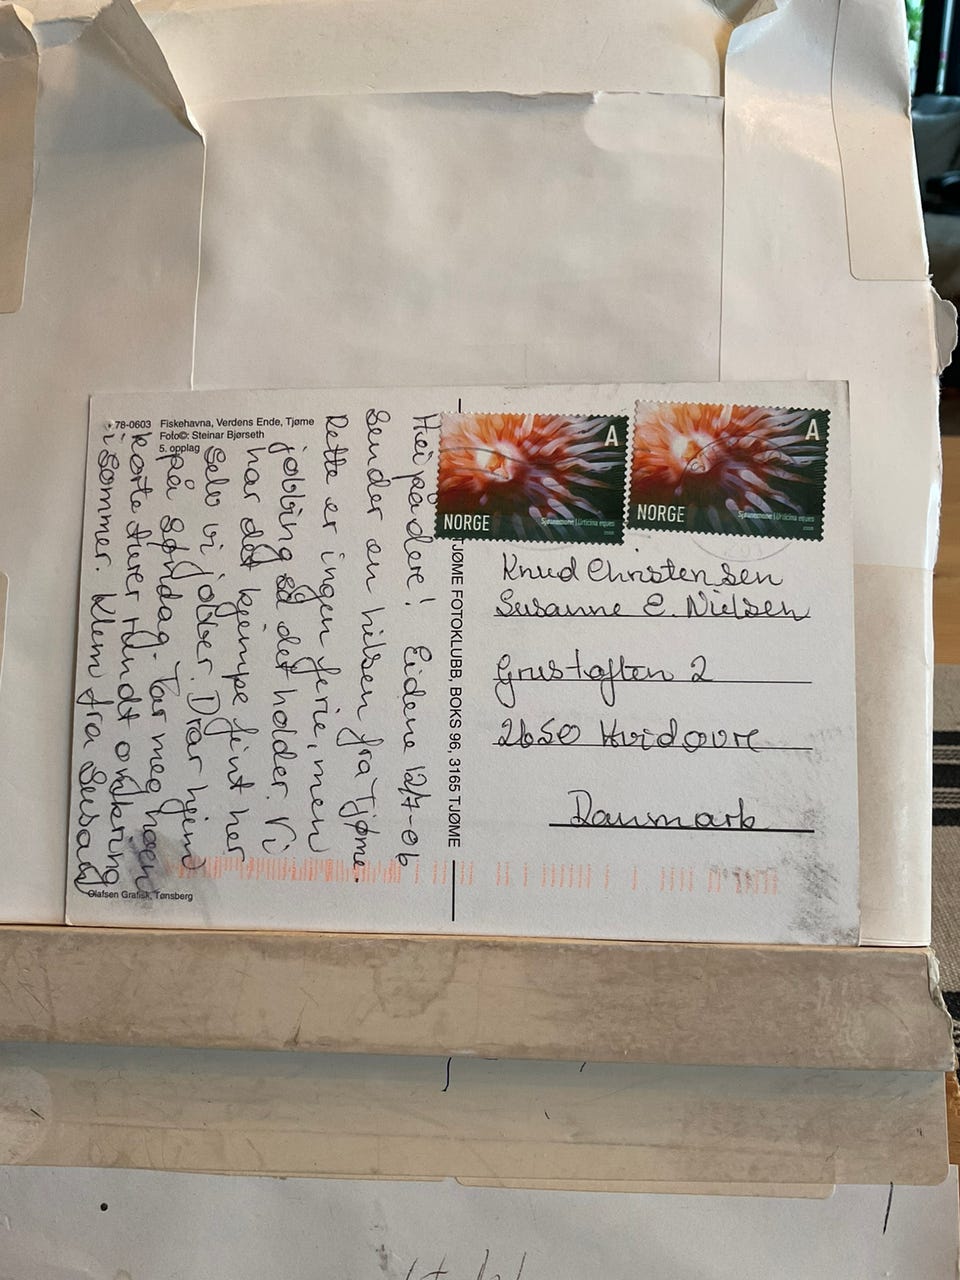 78-0603 Fiskehavna, Verdens Ende, Tjøme
Foto©: Steinar Bjørseth
5. opplag
Hei på dere! Eidene 12/7-06
Sender en hilsen fra Tjøme.
Dette er ingen ferie, men
jobbing så det holder. Vi
har det kjempe fint her
selv vi jobber. Drar hjem
på søndag. Tar meg noen
korte turer rundt omkring
i sommer. Klem fra
TJØME FOTOKLUBB, BOKS 96, 3165 TJØME
NORGE A
Sjøanemone | Urticina eques
NORGE A
Sjøanemone | Urticina eques
Knud Christensen
Susanne E. Nielsen
Grustoften 2
2650 Hvidovre
Danmark
Olafsen Grafisk, Tønsberg